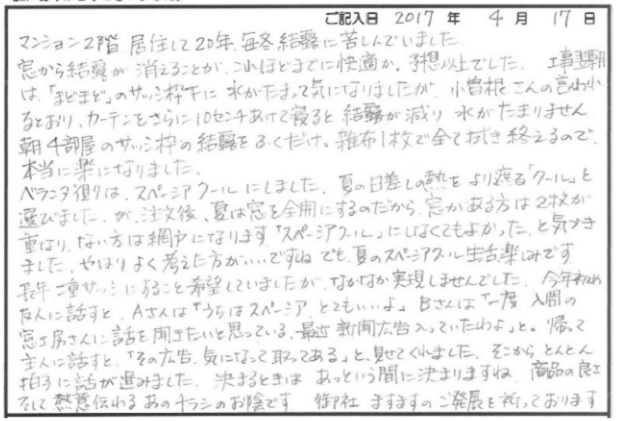 ご記入日 2017 年 4 月 17 日
マンション2階 居住して20年、毎冬 結露に苦しんでいました。
窓から結露が 消えることが、これほどまでに快適か。予想以上でした。工事翌朝
は、「まどまど」のサッシ枠下に 水がたまって気になりましたが、小曽根さんの言われ
るとおり、カーテンをさらに10センチあけて寝ると 結露が減り 水がたまりません
朝 4部屋のサッシ枠の結露をふくだけ。雑布1枚で全てふき終えるので、
本当に楽になりました。
ベランダ側は、スペーシアクールにしました。夏の日差しの熱をより遮る「クール」を
選びました。が、注文後、夏は窓を全開にするのだから、窓がある方は2枚が
重なり、ない方は網戸になります「スペーシアクール」にしなくてもよかった、と気づき
ました。やはりよく考えた方がいいですね でも、夏のスペーシアクール生活楽しみです
長年二重サッシにすること希望していましたが、なかなか実現しませんでした。今年初め
友人に話すと、Aさんは「うちはスペーシア、とてもいいよ」Bさんは「一度 入間の
窓工房さんに話を聞きたいと思っている、最近 新聞広告入っていたわよ」と。帰って
主人に話すと、「その広告、気になって取ってある」と、見せてくれました。そこからとんとん
拍子に話が進みました。決まるときは あっという間に決まりますね 商品の良さ
そして 熱意伝わる あのチラシのお陰です 御社 ますますのご発展を祈っております